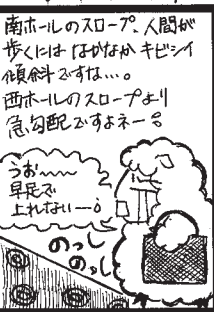 南ホールのスロープ、人間が
歩くにはなかなかキビシイ
傾斜ですな…。
西ホールのスロープより
急勾配ですよネー!
うお〜〜
早足で
上れないー!
のっし
のっし